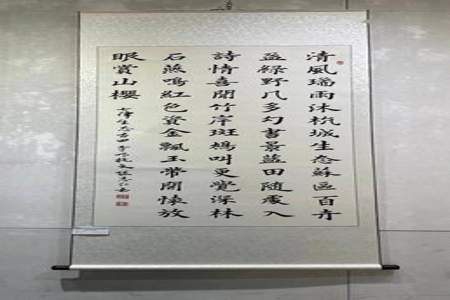 清風瑞雨沐杭城生态蘇區百卉
盈緑野几多勾畫景蓝田随處入
詩情喜聞竹岸斑鳩叫更覺深林
石燕鳴紅色資金飄玉帶開懷放
眼賞山櫻